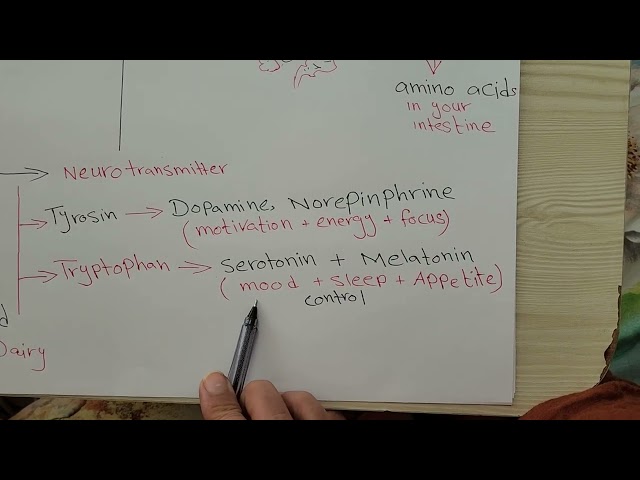 amino acids
in your
intestine
Neurotransmitter
Tyrosin → Dopamine, Norepinphrine
(motivation + energy + focus)
Tryptophan → Serotonin + Melatonin
(mood + sleep + Appetite)
control
d
Dairy